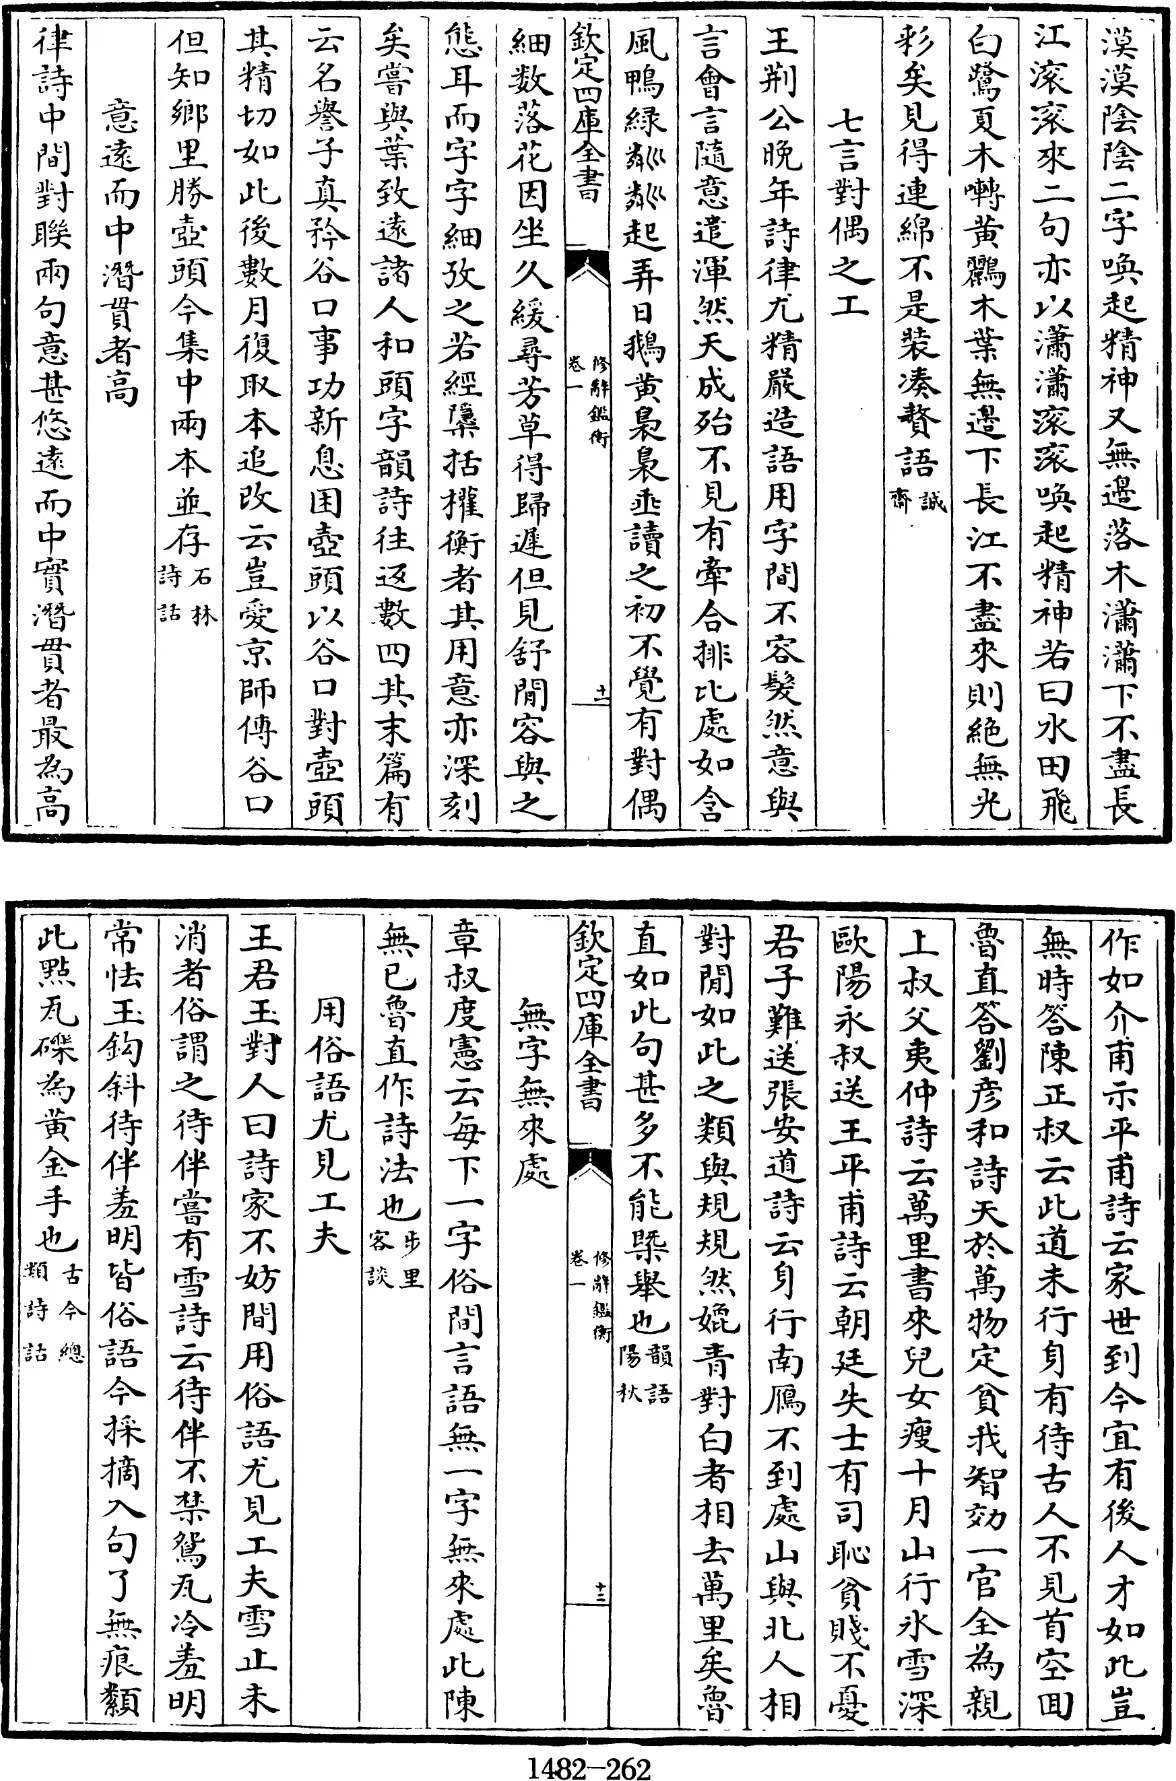 漠漠陰陰二字喚起精神又無邊落木瀟瀟下不盡長
江滚滚來二句亦以瀟瀟滚滚喚起精神若曰水田飛
白鷺夏木囀黄鸝木葉無邊下長江不盡來則絶無光
彩矣見得連綿不是裝凑贅語誠齋
七言對偶之工
王荆公晚年詩律尤精嚴造語用字間不容髮然意與
言會言隨意遣渾然天成殆不見有牽合排比處如含
風鴨緑粼粼起弄日鵝黄裊裊垂讀之初不覺有對偶
欽定四庫全書
修辭鑑衡
卷一
十二
細数落花因坐久緩尋芳草得歸遲但見舒閒容與之
態耳而字字細攷之若經檃括權衡者其用意亦深刻
矣嘗與葉致遠諸人和頭字韻詩往返數四其末篇有
云名譽子真矜谷口事功新息困壺頭以谷口對壺頭
其精切如此後數月復取本追改云豈愛京師傳谷口
但知鄉里勝壺頭今集中兩本並存石林詩話
意遠而中潛貫者高
律詩中間對聯兩句意甚悠遠而中實潛貫者最為高
作如介甫示平甫詩云家世到今宜有後人才如此豈
無時答陳正叔云此道未行身有待古人不見首空囬
魯直答劉彦和詩天於萬物定貧我智効一官全為親
上叔父夷仲詩云萬里書來兒女瘦十月山行氷雪深
歐陽永叔送王平甫詩云朝廷失士有司恥貧賤不憂
君子難送張安道詩云身行南鴈不到處山與北人相
對閒如此之類與規規然媲青對白者相去萬里矣魯
直如此句甚多不能槩舉也韻語陽秋
欽定四庫全書
修辭鑑衡
卷一
十三
無字無來處
章叔度憲云每下一字俗間言語無一字無來處此陳
無已魯直作詩法也步里客談
用俗語尤見工夫
王君玉對人曰詩家不妨間用俗語尤見工夫雪止未
消者俗謂之待伴嘗有雪詩云待伴不禁鴛瓦冷羞明
常怯玉鈎斜待伴羞明皆俗語今採摘入句了無痕纇
此點瓦礫為黄金手也古今總類詩話
1482-262